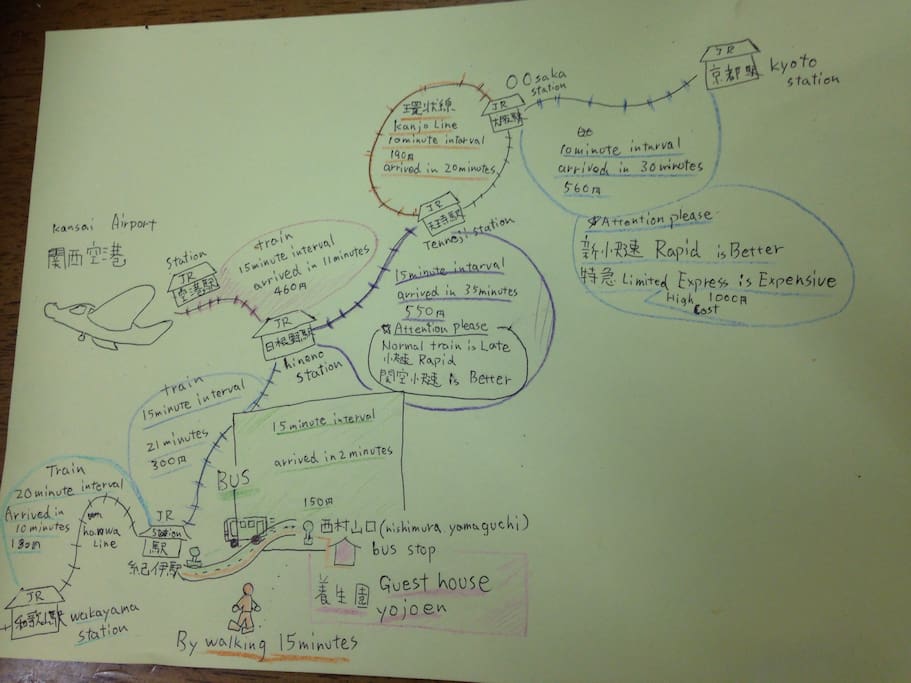 JR
京都駅
kyoto
station
OOsaka
station
JR
大阪駅
環状線
kanjo Line
10minute interval
190円
arrived in 20minutes
10minute interval
arrived in 30minutes
560円
Attention please
新快速 Rapid is Better
特急 Limited Express is Expensive
High 1000円
Cost
JR
天王寺駅
Tennoji station
15minute interval
arrived in 35minutes
550円
Attention please
Normal train is Late
快速 Rapid
関空快速 is Better
kansai Airport
関西空港
Station
JR
空港駅
train
15minute interval
arrived in 11minutes
460円
JR
日根野駅
hineno
station
train
15minute interval
21minutes
300円
15minute interval
arrived in 2minutes
BUS
150円
西村山口(nishimura yamaguchi)
bus stop
養生園 Guest house
yojoen
By walking 15minutes
Train
20minute interval
Arrived in
10minutes
180円
Line
JR
Station
駅
紀伊駅
JR
和歌山駅
wakayama
station